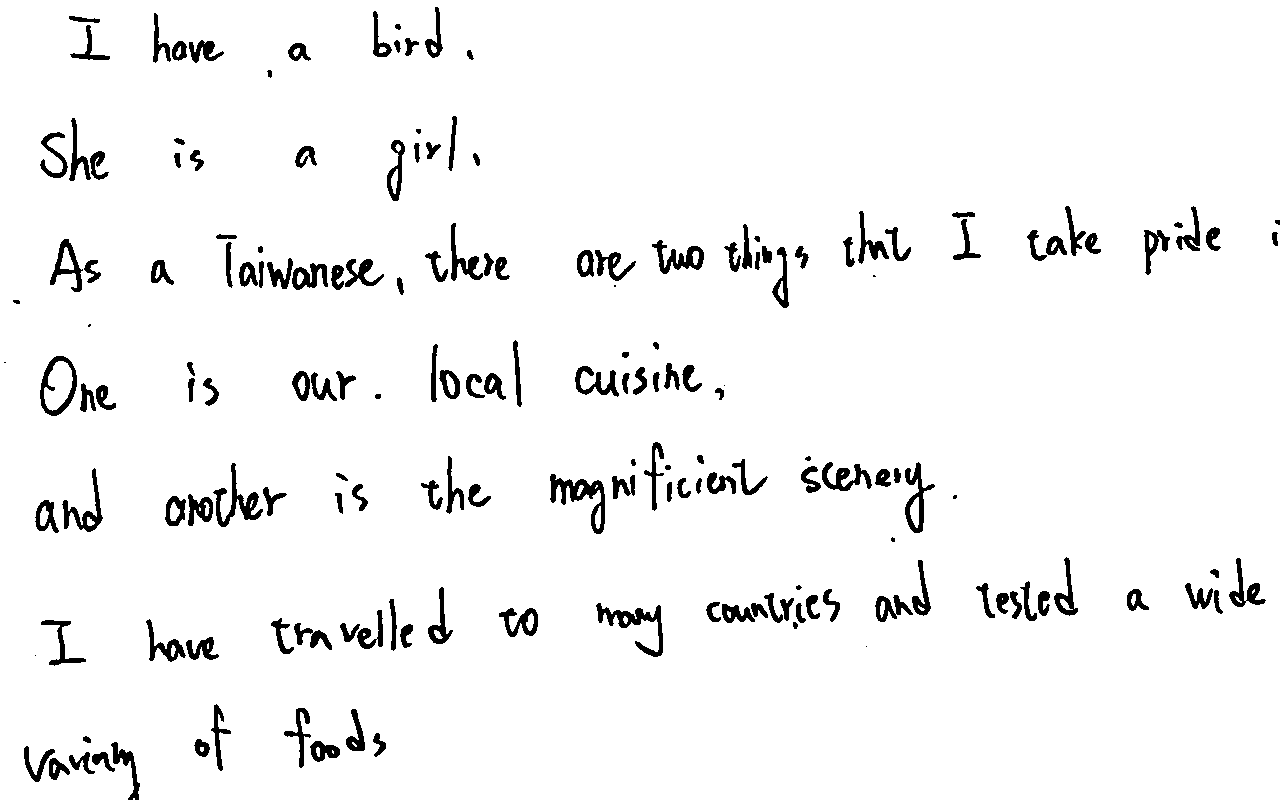 I have a bird.
She is a girl.
As a Taiwanese, there are two things that I take pride i
One is our local cuisine,
and another is the magnificient scenery.
I have travelled to many countries and tested a wide
of foods